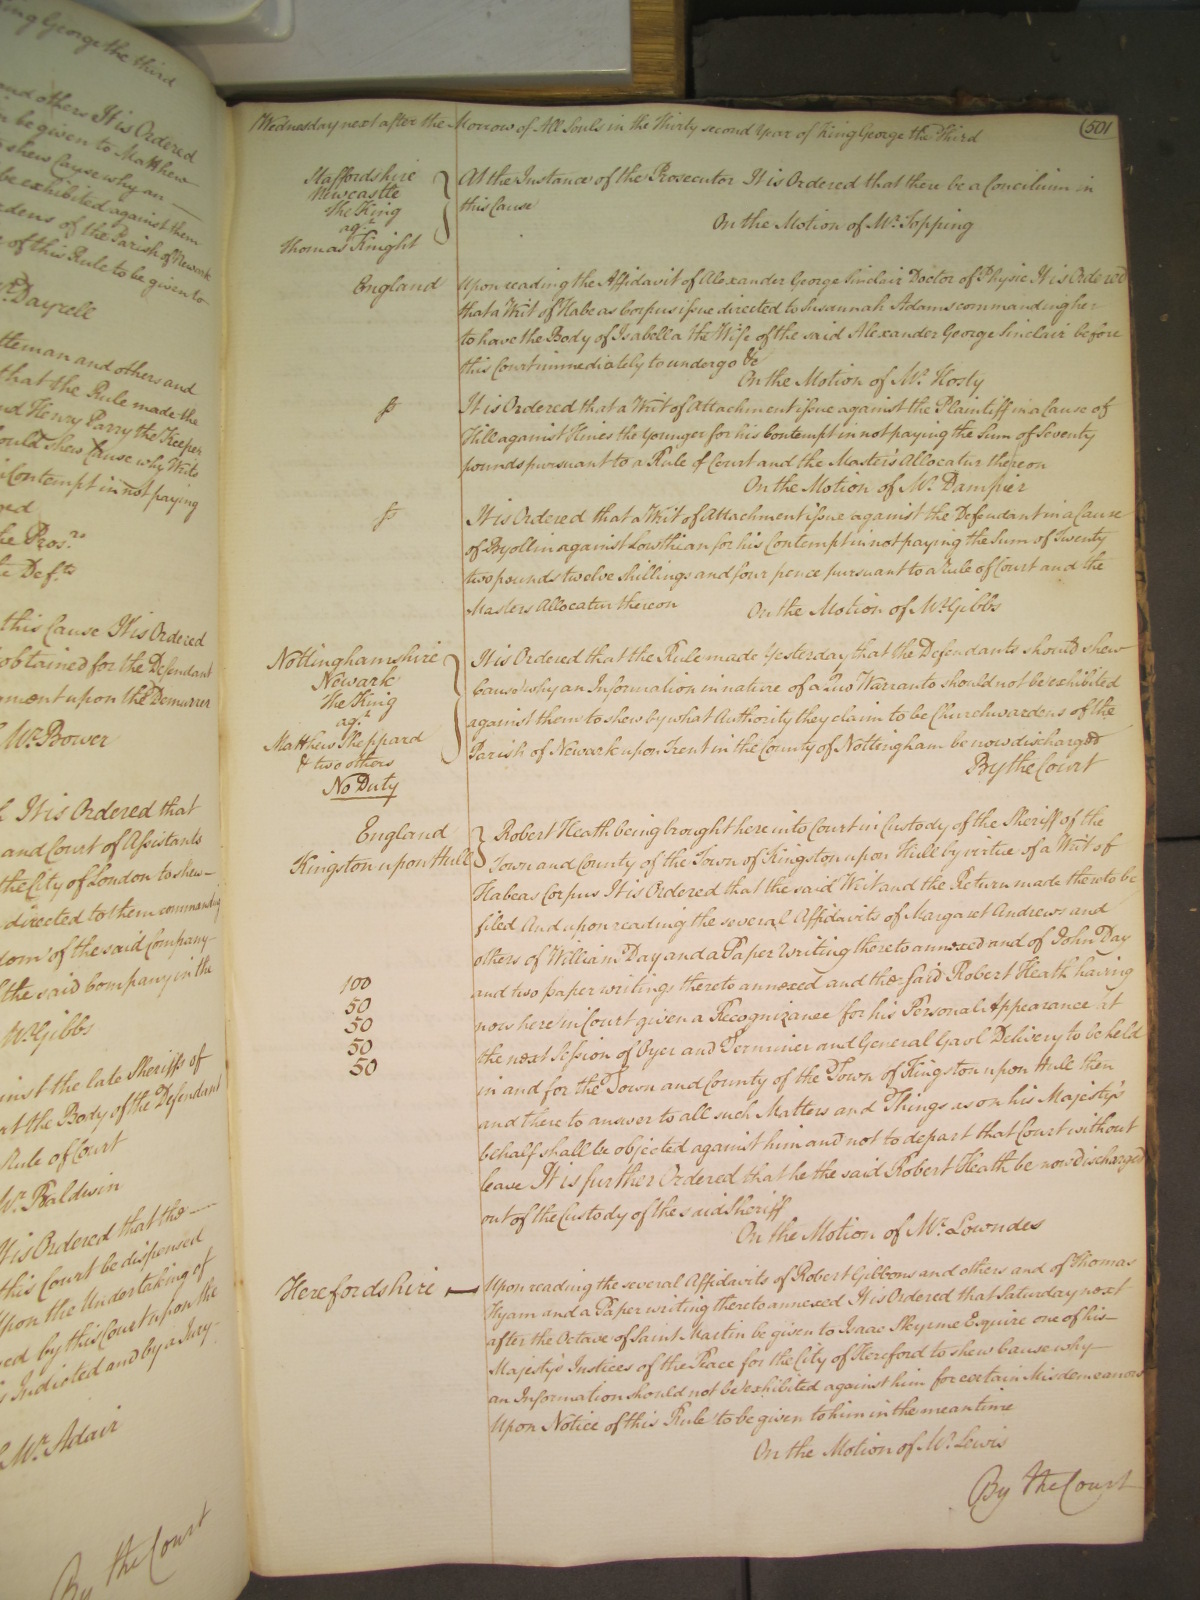 King George the third
and others It is Ordered
be given to Matthew
shew Cause why an
be exhibited against them
of the Parish of Newark
of this Rule to be given to
Mr. Dayrell
tleman and others and
that the Rule made the
and Henry Parry the Keeper
ould shew Cause why Writs
Contempt in not paying
he Pros.rs
Def.ts
this Cause It is Ordered
obtained for the Defendant
ment upon the Demurrer
Mr. Bower
It is Ordered that
and Court of Assistants
the City of London to shew
directed to them commanding
dom of the said Company
the said Company in the
Mr. Gibbs
inst the late Sheriffs of
the Body of the Defendant
Rule of Court
Mr. Baldwin
It is Ordered that the
this Court be dispensed
upon the Undertaking of
ed by this Court upon the
Indicted and by a Jury
Mr. Adair
By the Court
Wednesday next after the Morrow of All Souls in the Thirty second Year of King George the Third
501
Staffordshire
Newcastle
The King
ag.t
Thomas Knight
At the Instance of the Prosecutor It is Ordered that there be a Concilium in
this Cause
On the Motion of Mr. Topping
England
Upon reading the Affidavit of Alexander George Sinclair Doctor of Physic It is Ordered
that a Writ of Habeas Corpus issue directed to Susannah Adams commanding her
to have the Body of Isabella the Wife of the said Alexander George Sinclair before
this Court immediately to undergo &c
On the Motion of Mr. Hosty
It is Ordered that a Writ of Attachment issue against the Plaintiff in a Cause of
Hill against Hines the Younger for his Contempt in not paying the Sum of Seventy
pounds pursuant to a Rule of Court and the Master's Allocatur thereon
On the Motion of Mr. Dampier
It is Ordered that a Writ of Attachment issue against the Defendant in a Cause
of Bryollin against Lowthian for his Contempt in not paying the Sum of Twenty
two pounds twelve shillings and four pence pursuant to a Rule of Court and the
Masters Allocatur thereon
On the Motion of Mr. Gibbs
Nottinghamshire
Newark
The King
ag.t
Matthew Sheppard
& two others
No Duty
It is Ordered that the Rule made Yesterday that the Defendants should shew
Cause why an Information in nature of a Quo Warranto should not be exhibited
against them to shew by what Authority they claim to be Churchwardens of the
Parish of Newark upon Trent in the County of Nottingham be now discharged
By the Court
England
Kingston upon Hull
Robert Heath being brought here into Court in Custody of the Sheriff of the
Town and County of the Town of Kingston upon Hull by virtue of a Writ of
Habeas Corpus It is Ordered that the said Writ and the Return made thereto be
filed And upon reading the several Affidavits of Margaret Andrews and
others of William Day and a Paper Writing thereto annexed and of John Day
and two paper writings thereto annexed and the said Robert Heath having
now here in Court given a Recognizance for his Personal Appearance at
the next Session of Oyer and Terminer and General Gaol Delivery to be held
in and for the Town and County of the Town of Kingston upon Hull then
and there to answer to all such Matters and Things as on his Majesty's
behalf shall be objected against him and not to depart that Court without
leave It is further Ordered that he the said Robert Heath be now discharged
out of the Custody of the said Sheriff
On the Motion of Mr. Lowndes
100
50
50
50
50
Herefordshire
Upon reading the several Affidavits of Robert Gibbons and others and of Thomas
Hyam and a Paper writing thereto annexed It is Ordered that Saturday next
after the Octave of Saint Martin be given to Isaac Skyrme Esquire one of his
Majesty's Justices of the Peace for the City of Hereford to shew Cause why
an Information should not be exhibited against him for certain Misdemeanors
Upon Notice of this Rule to be given to him in the mean time
On the Motion of Mr. Lewis
By the Court